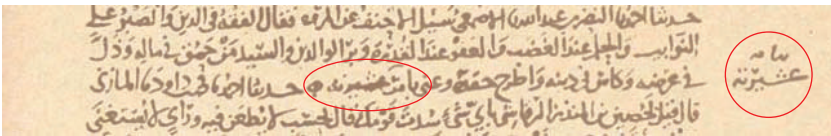 حدثنا احمد نا النضر بن عبد الله نا الاصمعي سئل الاحنف عن المروة فقال الفقه في الدين والصبر على
النوايب والحلم عند الغضب والعفو عند القدرة وبر الوالدين والسيد من حمق في ماله وذل
في عرضه وكاس في دينه واطرح حقده وعني بامر عشيرته حدثنا احمد نا محمد بن داود نا المازني
قال قيل لحصين بن المنذر الرقاشي باي شي سدت قومك قال بحسب لا يطعن فيه وراي لا يستغنى
بيانه
عشيرته